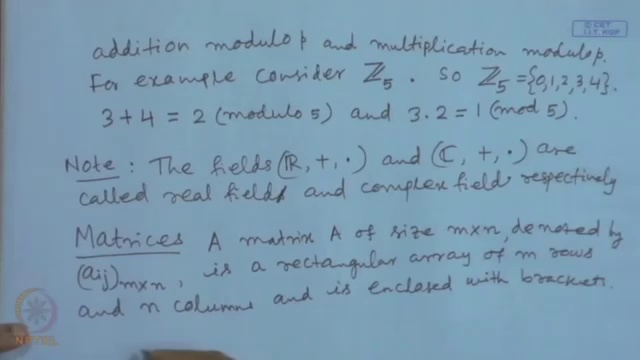 addition modulo p and multiplication modulo p.
For example consider ℤ₅. So ℤ₅ = {0,1,2,3,4}.
3+4 = 2 (modulo 5) and 3.2 = 1 (mod 5).
Note: The fields (ℝ, +, ·) and (ℂ, +, ·) are
called real field and complex field respectively
Matrices A matrix A of size m×n, denoted by
(aij)m×n, is a rectangular array of m rows
and n columns and is enclosed with brackets.
© CET
I.I.T. KGP
NPTEL